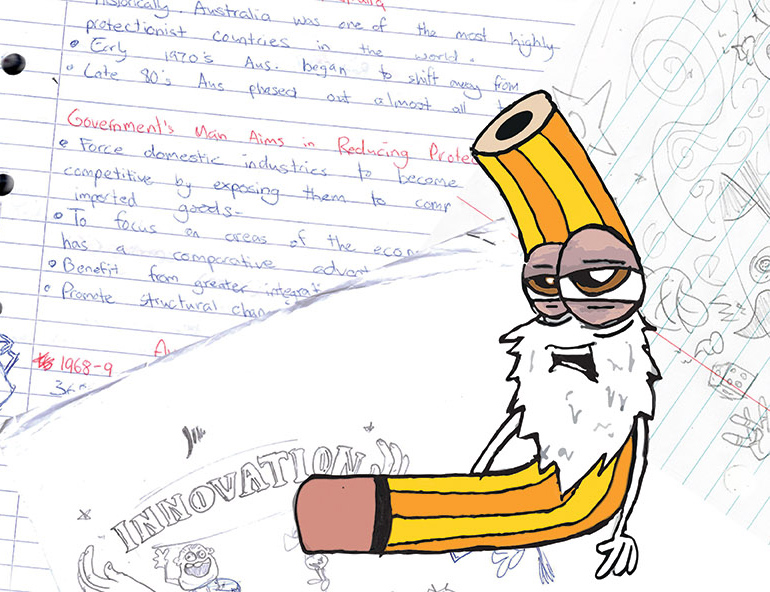 Historically, Australia was one of the most highly
protectionist countries in the world.
• Early 1970's Aus. began to shift away from
• Late 80's Aus phased out almost all
Government's Main Aims in Reducing Protec
• Force domestic industries to become
competitive by exposing them to comp
imported goods-
• To focus on areas of the econ
has a comparative advant
• Benefit from greater integrati
• Promote structural chan
1968-9
INNOVATION